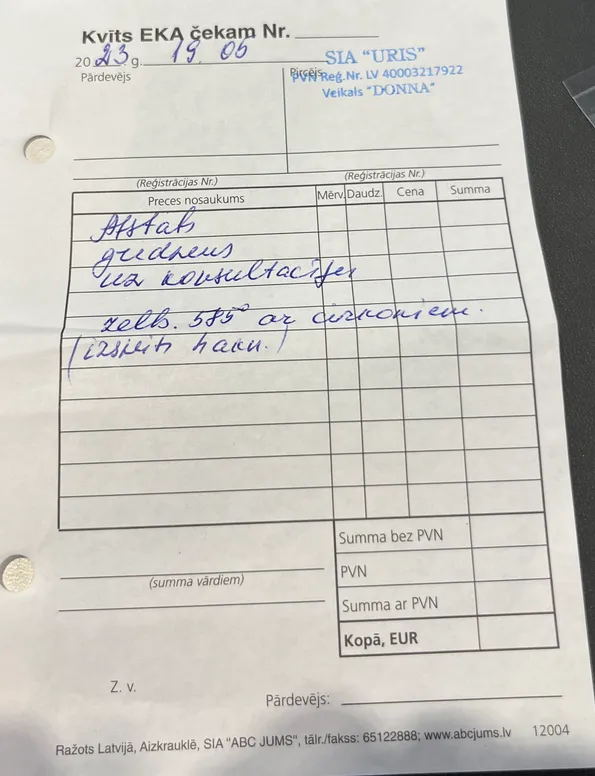 Kvīts EKA čekam Nr.
2023 g. 19. 05
SIA "URIS"
Pārdevējs
Pircējs
PVN Reģ.Nr. LV 40003217922
Veikals "DONNA"
(Reģistrācijas Nr.)
(Reģistrācijas Nr.)
Preces nosaukums Mērv. Daudz. Cena Summa
Atstāts
gredzens
uz konsultāciju
zelts. 585° ar cirkoniem.
Summa bez PVN
PVN
(summa vārdiem)
Summa ar PVN
Kopā, EUR
Z. v.
Pārdevējs:
Ražots Latvijā, Aizkrauklē, SIA "ABC JUMS", tālr./fakss: 65122888; www.abcjums.lv 12004